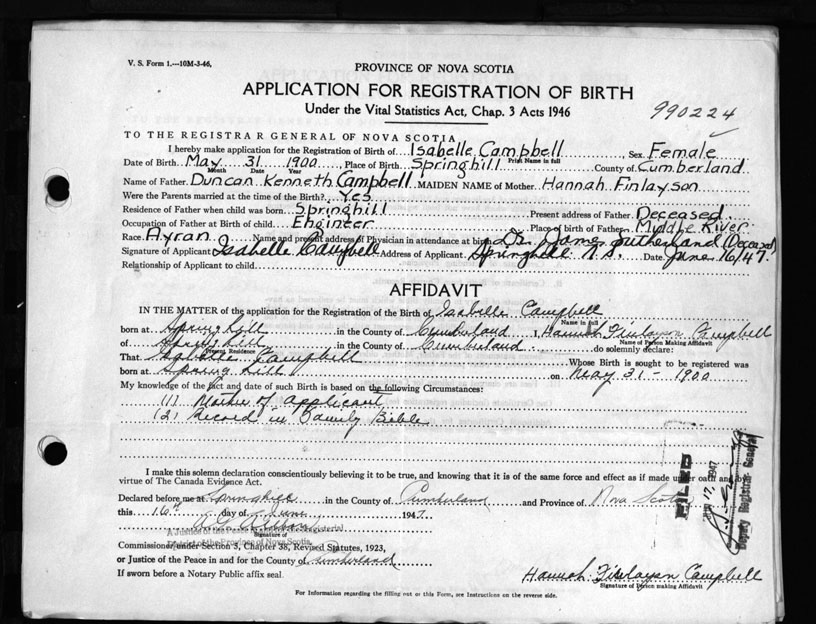 V. S. Form 1.---10M-3-46.
PROVINCE OF NOVA SCOTIA
APPLICATION FOR REGISTRATION OF BIRTH
Under the Vital Statistics Act, Chap. 3 Acts 1946
990224
TO THE REGISTRAR GENERAL OF NOVA SCOTIA
I hereby make application for the Registration of Birth of Isabelle Campbell, Sex Female
Print Name in full
Date of Birth May 31 1900, Place of Birth Springhill County of Cumberland
Month Date Year
Name of Father Duncan Kenneth Campbell MAIDEN NAME of Mother Hannah Finlayson
Were the Parents married at the time of the Birth? Yes
Residence of Father when child was born Springhill Present address of Father Deceased.
Occupation of Father at Birth of child Engineer Place of birth of Father Myddle River
Race Ayran Name and present address of Physician in attendance at birth Dr. James Sutherland (Deceased)
Signature of Applicant Isabelle Campbell Address of Applicant Springhill N.S. Date June 16/47.
Relationship of Applicant to child
AFFIDAVIT
IN THE MATTER of the application for the Registration of the Birth of Isabelle Campbell
Name in full
born at Spring hill in the County of Cumberland I, Hannah Finlayson Campbell
Name of Person Making Affidavit
of Spring hill in the County of Cumberland do solemnly declare:
Present Residence
That Isabelle Campbell Whose Birth is sought to be registered was
born at Spring hill on May 31 - 1900
My knowledge of the fact and date of such Birth is based on the following Circumstances:
(1) Mother of applicant
(2) Record in Family Bible
I make this solemn declaration conscientiously believing it to be true, and knowing that it is of the same force and effect as if made under oath and by
virtue of The Canada Evidence Act.
Declared before me at Springhill in the County of Cumberland and Province of Nova Scotia
this 16th day of June 1947
Signature of
A Justice of the Peace
District of the Province of Nova Scotia.
Commissioner under Section 5, Chapter 38, Revised Statutes, 1923,
or Justice of the Peace in and for the County of Cumberland
If sworn before a Notary Public affix seal
Hannah Finlayson Campbell
Signature of Person making Affidavit
For Information regarding the filling out of this Form, see Instructions on the reverse side.
FILED
17 1947
Deputy Registrar General